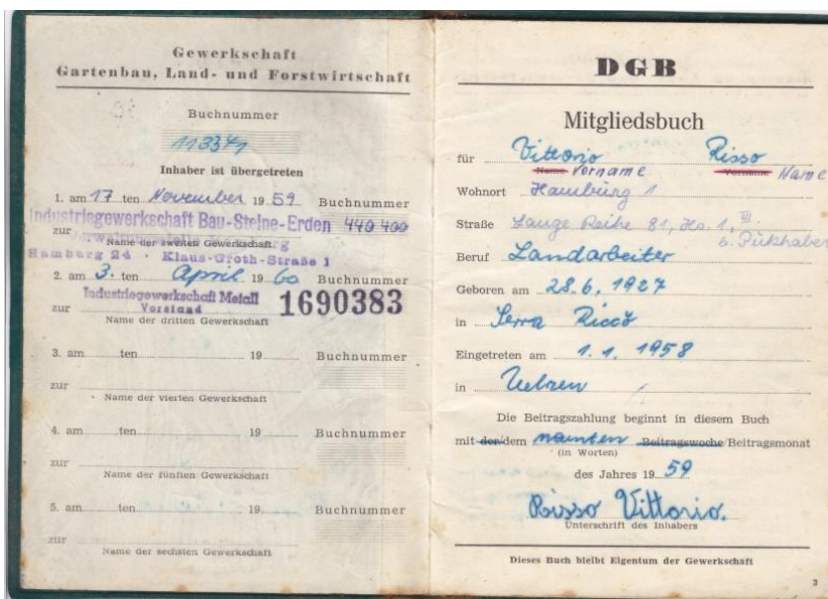 Gewerkschaft
Gartenbau, Land- und Forstwirtschaft
Buchnummer
113371
Inhaber ist übergetreten
1. am 17 ten November 19 59 Buchnummer
Industriegewerkschaft Bau-Steine-Erden 440 400
zur
Name der zweiten Gewerkschaft
Hamburg 24 · Klaus-Groth-Straße 1
2. am 3. ten April 19 60 Buchnummer
Industriegewerkschaft Metall
zur Vorstand 1690383
Name der dritten Gewerkschaft
3. am ten 19 Buchnummer
zur
Name der vierten Gewerkschaft
4. am ten 19 Buchnummer
zur
Name der fünften Gewerkschaft
5. am ten 19 Buchnummer
zur
Name der sechsten Gewerkschaft
DGB
Mitgliedsbuch
für Vittorio Risso
Name Vorname Vorname Name
Wohnort Hamburg 1
Straße Lange Reihe 81, Hs. 1, III.
b. Pükhaber
Beruf Landarbeiter
Geboren am 28.6.1927
in Serra Riccò
Eingetreten am 1.1.1958
in Uelzen
Die Beitragszahlung beginnt in diesem Buch
mit der/dem neunten Beitragswoche/Beitragsmonat
(in Worten)
des Jahres 19 59
Risso Vittorio.
Unterschrift des Inhabers
Dieses Buch bleibt Eigentum der Gewerkschaft
3